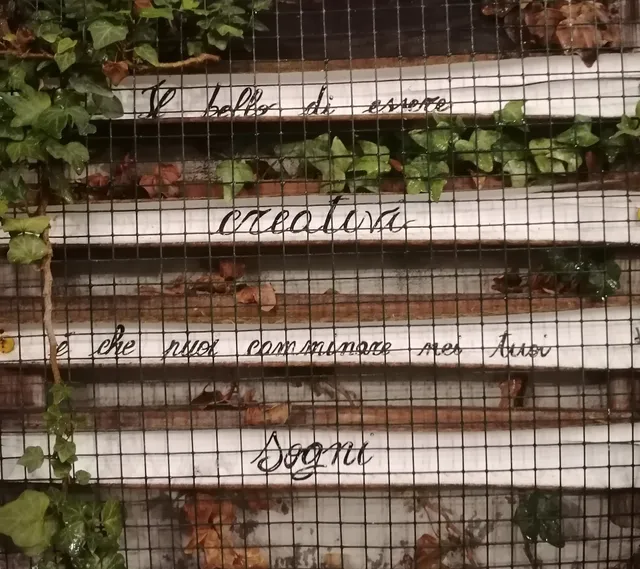 Il bello di essere
creativi
è che puoi camminare nei tuoi
sogni